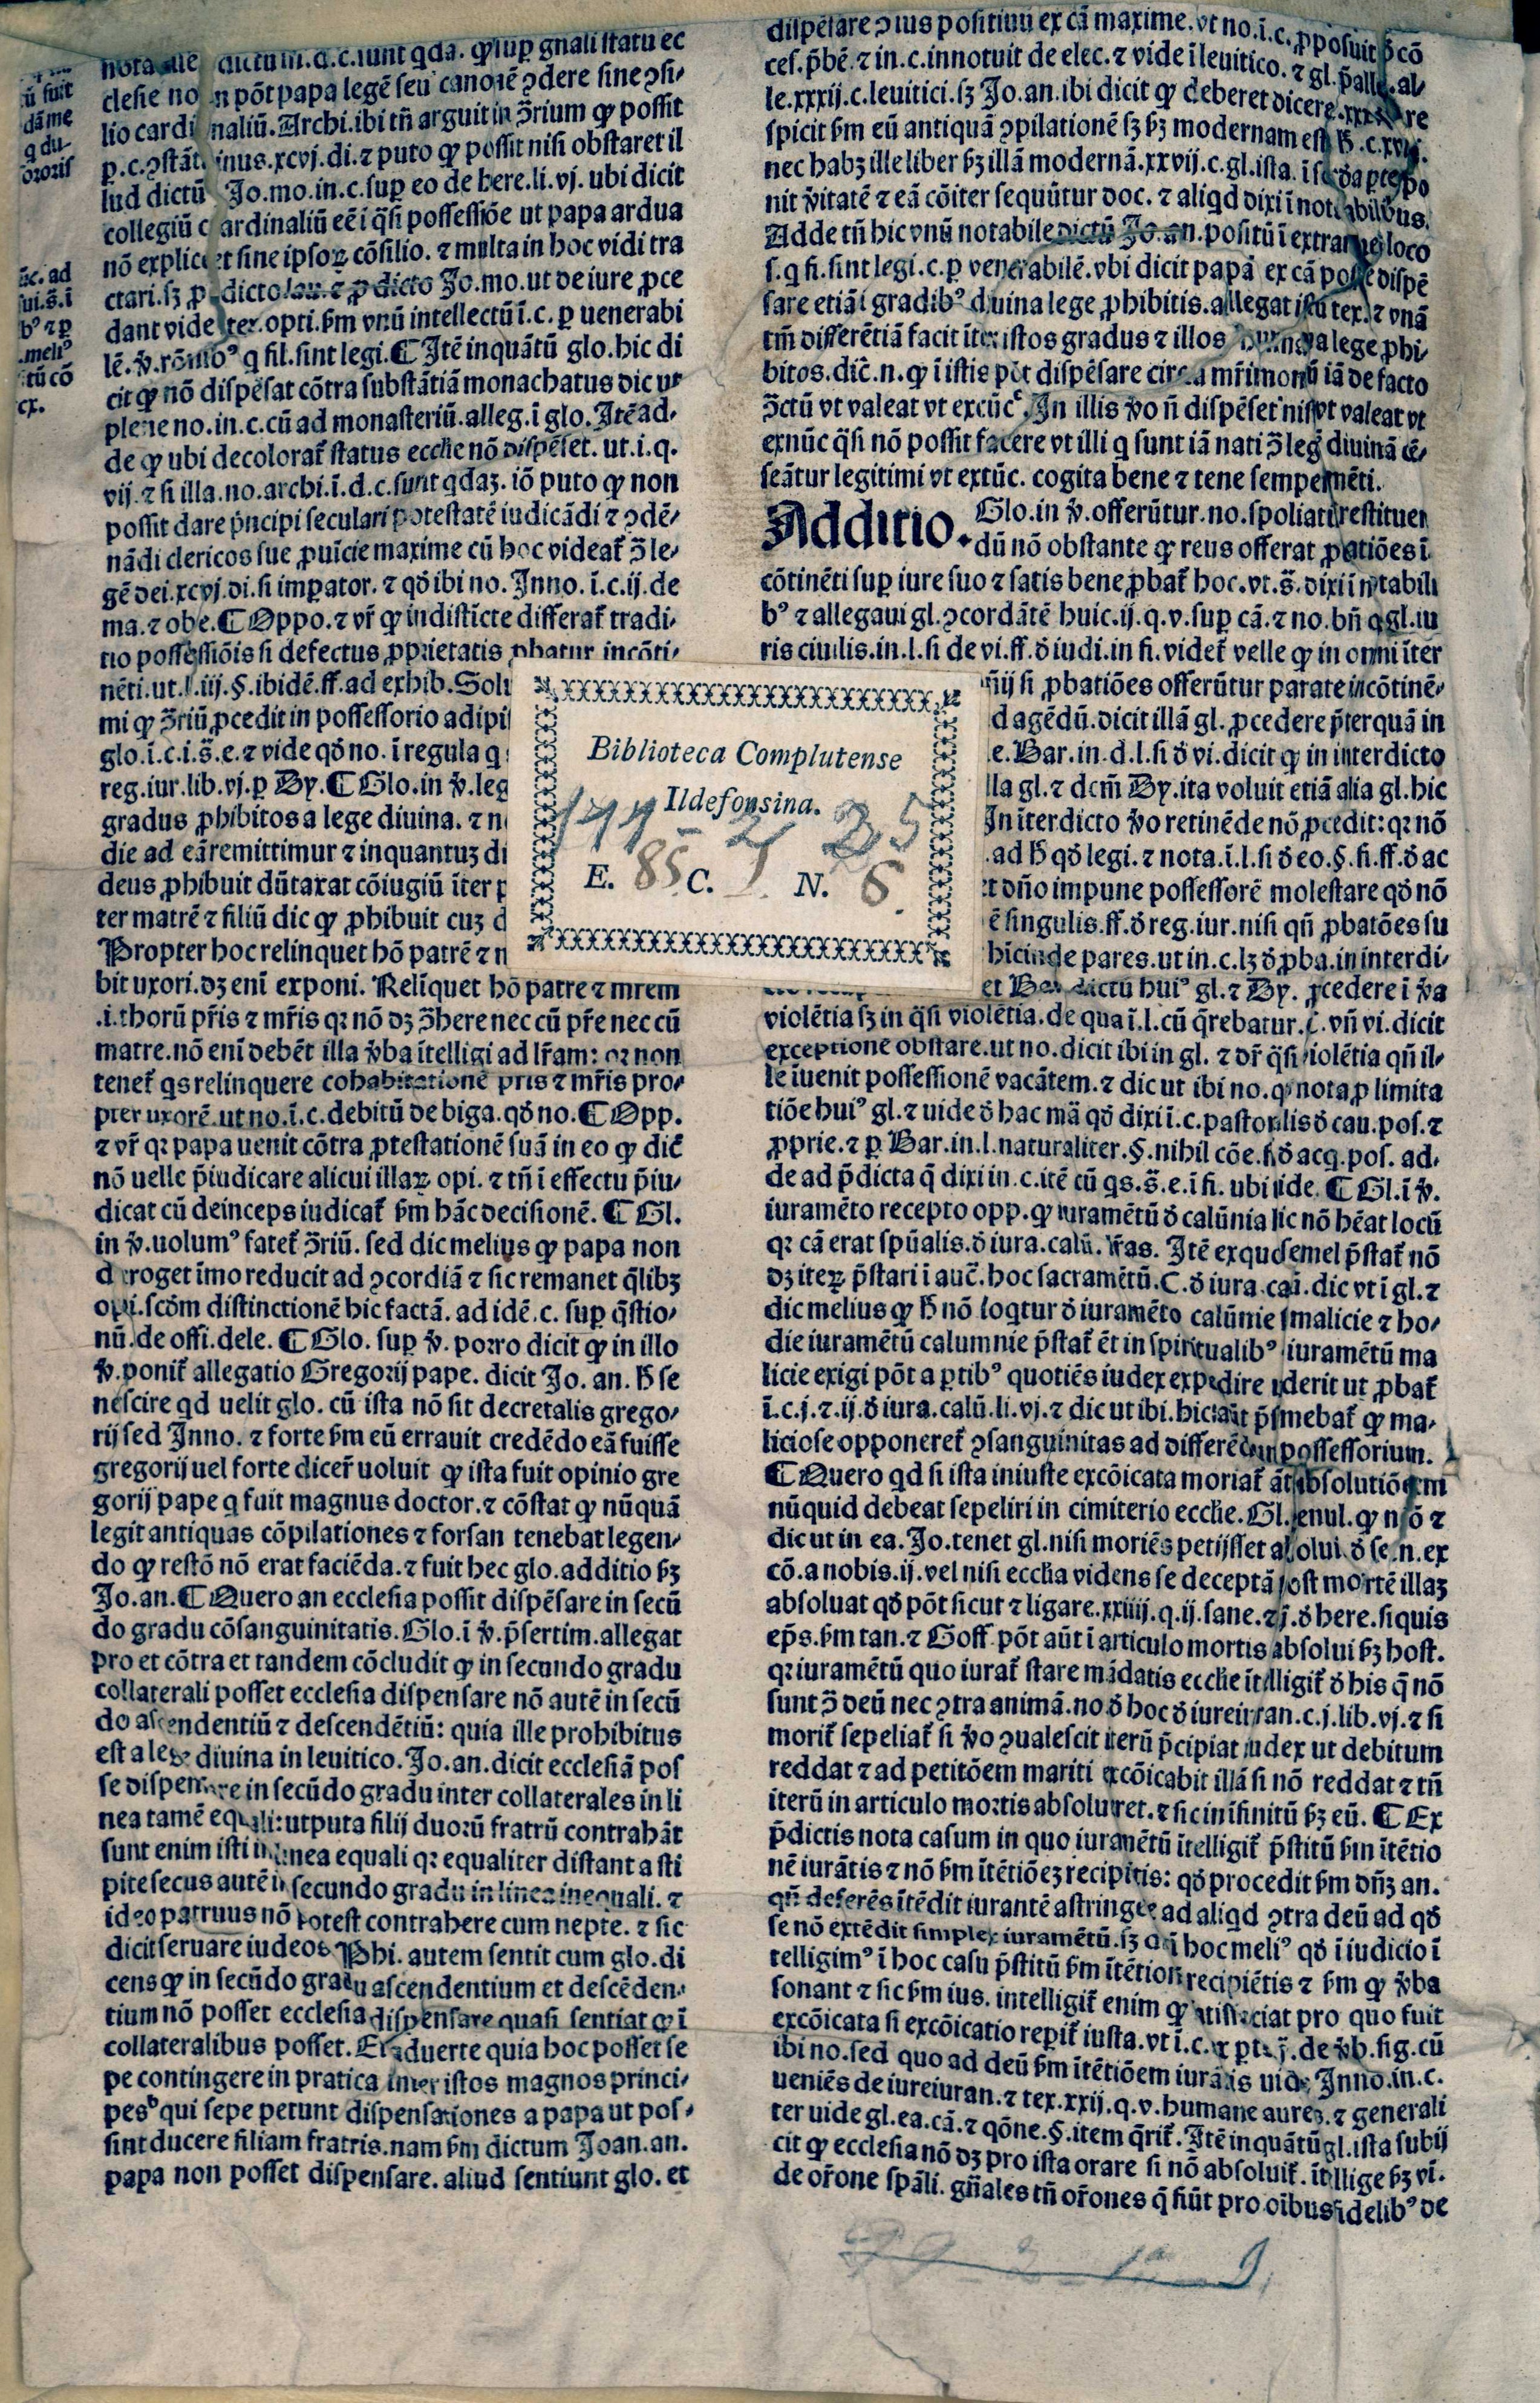 clesie non põt papa legẽ seu canonẽ ꝯdere sine ꝯsi-
lio cardinaliũ. Archi. ibi tñ arguit in ꝯ̃rium ꝙ possit
nus. xcvj. di. ⁊ puto ꝙ possit nisi obstaret il
lud dictũ Jo. mo. in. c. suꝑ eo de here. li. vj. ubi dicit
collegiũ cardinaliũ eẽ i q̃si possessiõe ut papa ardua
nõ explicet sine ipsoꝝ cõsilio. ⁊ multa in hoc vidi tra
ctari. sꝫ ꝓ dicto Jo. mo. ut de iure ꝓce
dant vide opti. ẜm vnũ intellectũ ĩ. c. ꝑ uenerabi
lẽ. ꝟ. rõmoꝰ q fil. sint legi. ¶ Itẽ inquãtũ glo. hic di
cit ꝙ nõ dispẽsat cõtra substãtiã monachatus dic ut
plene no. in. c. cũ ad monasteriũ. alleg. ĩ glo. Itẽ ad-
de ꝙ ubi decolorat̃ status ecclie nõ dispẽset. ut. i. q.
vij. ⁊ si illa. no. archi. ĩ. d. c. sunt qdaꝫ. iõ puto ꝙ non
possit dare p̃ncipi seculari potestatẽ iudicãdi ⁊ ꝯdẽ-
nãdi clericos sue ꝓuĩcie maxime cũ hoc videat̃ ꝯ̃ le-
gẽ dei. xcvj. di. si imꝑator. ⁊ qð ibi no. Inno. ĩ. c. ij. de
ma. ⁊ obe. ¶ Oppo. ⁊ vr̃ ꝙ indistĩcte differat̃ tradi-
tio possessiõis si defectus ꝓprietatis ꝓbatur incõti-
nẽti. ut. l. iij. §. ibidẽ. ff. ad exhib. Solu
mi ꝙ ꝯ̃riũ ꝓcedit in possessorio adipi
glo. ĩ. c. i. s̃. e. ⁊ vide qð no. ĩ regula q
reg. iur. lib. vj. ꝑ Dy. ¶ Glo. in ꝟ. leg
gradus ꝓhibitos a lege diuina. ⁊ n
die ad eã remittimur ⁊ inquantuꝫ di
deus ꝓhibuit dũtaxat cõiugiũ ĩter p
ter matrẽ ⁊ filiũ dic ꝙ ꝓhibuit cuꝫ d
Propter hoc relinquet hõ patrẽ ⁊ m
bit uxori. dꝫ enĩ exponi. Relĩquet hõ patre ⁊ mrem
.i. thorũ pr̃is ⁊ mr̃is qꝛ nõ dꝫ ꝯ̃here nec cũ pr̃e nec cũ
matre. nõ enĩ debẽt illa ꝟba ĩtelligi ad lr̃am: qꝛ non
tenet̃ qs relinquere cohabitationẽ pris ⁊ mr̃is pro-
pter uxorẽ. ut no. ĩ. c. debitũ de biga. qð no. ¶ Opp.
⁊ vr̃ qꝛ papa uenit cõtra ꝓtestationẽ suã in eo ꝙ dic̃
nõ uelle p̃iudicare alicui illaꝝ opi. ⁊ tñ ĩ effectu p̃iu-
dicat cũ deinceps iudicat̃ ẜm hãc decisionẽ. ¶ Gl.
in ꝟ. uolumꝰ fatet̃ ꝯ̃riũ. sed dic melius ꝙ papa non
deroget ĩmo reducit ad ꝯcordiã ⁊ sic remanet q̃libꝫ
opi. scðm distinctionẽ hic factã. ad idẽ. c. suꝑ q̃stio-
nũ. de offi. dele. ¶ Glo. suꝑ ꝟ. porro dicit ꝙ in illo
ꝟ. ponit̃ allegatio Gregorij pape. dicit Jo. an. ħ se
nescire qd uelit glo. cũ ista nõ sit decretalis grego-
rij sed Inno. ⁊ forte ẜm eũ errauit credẽdo eã fuisse
gregorij uel forte dicer̃ uoluit ꝙ ista fuit opinio gre
gorij pape q fuit magnus doctor. ⁊ cõstat ꝙ nũquã
legit antiquas cõpilationes ⁊ forsan tenebat legen-
do ꝙ restõ nõ erat faciẽda. ⁊ fuit hec glo. additio ẜꝫ
Jo. an. ¶ Quero an ecclesia possit dispẽsare in secũ
do gradu cõsanguinitatis. Glo. ĩ ꝟ. p̃sertim. allegat
pro et cõtra et tandem cõcludit ꝙ in secundo gradu
collaterali posset ecclesia dispensare nõ autẽ in secũ
do ascendentiũ ⁊ descendẽtiũ: quia ille prohibitus
est a lege diuina in leuitico. Jo. an. dicit ecclesiã pos
se dispensare in secũdo gradu inter collaterales in li
nea tamẽ equali: utputa filij duorũ fratrũ contrahãt
sunt enim isti in linea equali qꝛ equaliter distant a sti
pite secus autẽ in secundo gradu in linea inequali. ⁊
ideo patruus nõ potest contrahere cum nepte. ⁊ sic
dicit seruare iudeos. Phi. autem sentit cum glo. di
cens ꝙ in secũdo gradu ascendentium et descẽden-
tium nõ posset ecclesia dispensare quasi sentiat ꝙ ĩ
collateralibus posset. Et aduerte quia hoc posset se
pe contingere in pratica inter istos magnos princi-
pes qui sepe petunt dispensationes a papa ut pos-
sint ducere filiam fratris. nam ẜm dictum Joan. an.
papa non posset dispensare. aliud sentiunt glo. et
dispẽsare ꝯ ius positiuũ ex cã maxime. vt no. ĩ. c. ꝓposuit cõ
ces. p̃bẽ. ⁊ in. c. innotuit de elec. ⁊ vide ĩ leuitico. ⁊ gl. p̃all. al-
le. xxxij. c. leuitici. sꝫ Jo. an. ibi dicit ꝙ deberet dicere
spicit ẜm eũ antiquã ꝯpilationẽ sꝫ ẜꝫ modernam est ħ. c. xvij.
nec habꝫ ille liber ẜꝫ illã modernã. xxvij. c. gl. ista. ĩ
nit ꝟitatẽ ⁊ eã cõiter sequũtur doc. ⁊ aliqd dixi ĩ notabilibus.
Adde tñ hic vnũ notabile dictũ Jo. an. positũ ĩ loco
s. q fi. sint legi. c. ꝑ venerabilẽ. vbi dicit papã ex cã posse dispẽ
sare etiã i gradibꝰ diuina lege ꝓhibitis. allegat istũ tex. ⁊ vnã
tm̃ differẽtiã facit ĩter istos gradus ⁊ illos humana lege ꝓhi-
bitos. dic̃. n. ꝙ ĩ istis põt dispẽsare circa mr̃imoniũ iã de facto
ꝯ̃ctũ vt valeat vt ex tũc. In illis ꝟo ñ dispẽset nisi vt valeat vt
ex nũc q̃si nõ possit facere vt illi q sunt iã nati ꝯ̃ legẽ diuinã cẽ-
seãtur legitimi vt ex tũc. cogita bene ⁊ tene semper mẽti.
Additio. Glo. in ꝟ. offerũtur. no. spoliatũ restituen
dũ nõ obstante ꝙ reus offerat ꝓbatiões ĩ
cõtinẽti suꝑ iure suo ⁊ satis bene ꝓbat̃ hoc. vt. s̃. dixi ĩ notabili
bꝰ ⁊ allegaui gl. ꝯcordãtẽ huic. ij. q. v. suꝑ cã. ⁊ no. bñ q gl. iu
ris ciuilis. in. l. si de vi. ff. ð iudi. in fi. videt̃ velle ꝙ in omni ĩter
ñij si ꝓbatiões offerũtur parate in cõtinẽ-
d agẽdũ. dicit illã gl. ꝓcedere p̃terquã in
e. Bar. in. d. l. si ð vi. dicit ꝙ in interdicto
lla gl. ⁊ dcm̃ Dy. ita voluit etiã alia gl. hic
In ĩterdicto ꝟo retinẽde nõ ꝓcedit: qꝛ nõ
.ad ħ qð legi. ⁊ nota. ĩ. l. si ð eo. §. fi. ff. ð ac
et dño impune possessorẽ molestare qð nõ
ẽ singulis. ff. ð reg. iur. nisi qñ ꝓbatões su
hĩcinde pares. ut in. c. lꝫ ð ꝓba. in interdi-
et Bar. dictũ huiꝰ gl. ⁊ Dy. ꝓcedere ĩ ꝟa
violẽtia sꝫ in q̃si violẽtia. de qua ĩ. l. cũ q̃rebatur. vñ vi. dicit
exceptione obstare. ut no. dicit ibi in gl. ⁊ dr̃ q̃si violẽtia qñ il-
le ĩuenit possessionẽ vacãtem. ⁊ dic ut ibi no. ꝙ nota ꝓ limita
tiõe huiꝰ gl. ⁊ uide ð hac mã qð dixi ĩ. c. pastoralis ð cau. pos. ⁊
ꝓprie. ⁊ ꝑ Bar. in. l. naturaliter. §. nihil cõe. ff. ð acq. pos. ad-
de ad p̃dicta q̃ dixi in. c. itẽ cũ qs. s̃. e. ĩ fi. ubi uide. ¶ Gl. ĩ ꝟ.
iuramẽto recepto opp. ꝙ iuramẽtũ ð calũnia hic nõ hẽat locũ
qꝛ cã erat spũalis. ð iura. calũ. lr̃as. Itẽ ex quo semel p̃stat̃ nõ
dꝫ iteꝝ p̃stari ĩ auc̃. hoc sacramẽtũ. C. ð iura. calũ. dic vt ĩ gl. ⁊
dic melius ꝙ ħ nõ loqtur ð iuramẽto calũnie s malicie ⁊ ho-
die iuramẽtũ calumnie p̃stat̃ ẽt in spiritualibꝰ iuramẽtũ ma
licie exigi põt a ꝑtibꝰ quotiẽs iudex expedire uiderit ut ꝓbat̃
ĩ. c. j. ⁊. ij. ð iura. calũ. li. vj. ⁊ dic ut ibi. hic aũt p̃sumebat̃ ꝙ ma-
liciose opponeret̃ ꝯsanguinitas ad differẽdum possessorium.
¶ Quero qd si ista iniuste excõicata moriat̃ ãte absolutiõem
nũquid debeat sepeliri in cimiterio ecclie. Gl. penul. ꝙ nõ ⁊
dic ut in ea. Jo. tenet gl. nisi moriẽs petijsset absolui. ð se. n. ex
cõ. a nobis. ij. vel nisi ecclia videns se deceptã post mortẽ illaꝫ
absoluat qð põt sicut ⁊ ligare. xxiiij. q. ij. sane. ⁊ j. ð here. si quis
ep̃s. ẜm tan. ⁊ Goff. põt aũt ĩ articulo mortis absolui ẜꝫ host.
qꝛ iuramẽtũ quo iurat̃ stare mãdatis ecclie ĩtelligit̃ ð his q̃ nõ
sunt ꝯ̃ deũ nec ꝯtra animã. no. ð hoc ð iureiuran. c. j. lib. vj. ⁊ si
morit̃ sepeliat̃ si ꝟo ꝯualescit iterũ p̃cipiat iudex ut debitum
reddat ⁊ ad petitõem mariti excõicabit illã si nõ reddat ⁊ tñ
iterũ in articulo mortis absoluret. ⁊ sic in ĩfinitũ ẜꝫ eũ. ¶ Ex
p̃dictis nota casum in quo iuramẽtũ ĩtelligit̃ p̃stitũ ẜm ĩtẽtio
nẽ iurãtis ⁊ nõ ẜm ĩtẽtiõeꝫ recipiẽtis: qð procedit ẜm dñꝫ an.
qñ deferẽs ĩtẽdit iurantẽ astringere ad aliqd ꝯtra deũ ad qð
se nõ extẽdit simplex iuramẽtũ. sꝫ hoc meliꝰ qð ĩ iudicio ĩ
telligimꝰ ĩ hoc casu p̃stitũ ẜm ĩtẽtionẽ recipiẽtis ⁊ ẜm ꝙ ꝟba
sonant ⁊ sic ẜm ius. intelligit̃ enim ꝙ satisfaciat pro quo fuit
excõicata si excõicatio reperit̃ iusta. vt ĩ. c. de ꝟb. sig. cũ
ibi no. sed quo ad deũ ẜm ĩtẽtiõem iurãtis uide Inno. in. c.
ueniẽs de iureiuran. ⁊ tex. xxij. q. v. humane aures. ⁊ generali
ter uide gl. ea. cã. ⁊ qõne. §. item q̃rit̃. Itẽ inquãtũ gl. ista subij
cit ꝙ ecclesia nõ dꝫ pro ista orare si nõ absoluit̃. ĩtellige ẜꝫ vĩ.
de or̃one spãli. gñales tñ or̃ones q̃ fiũt pro oĩbus fidelibꝰ de
Biblioteca Complutense
Ildefonsina.
E. 85 C. 1 N. 6